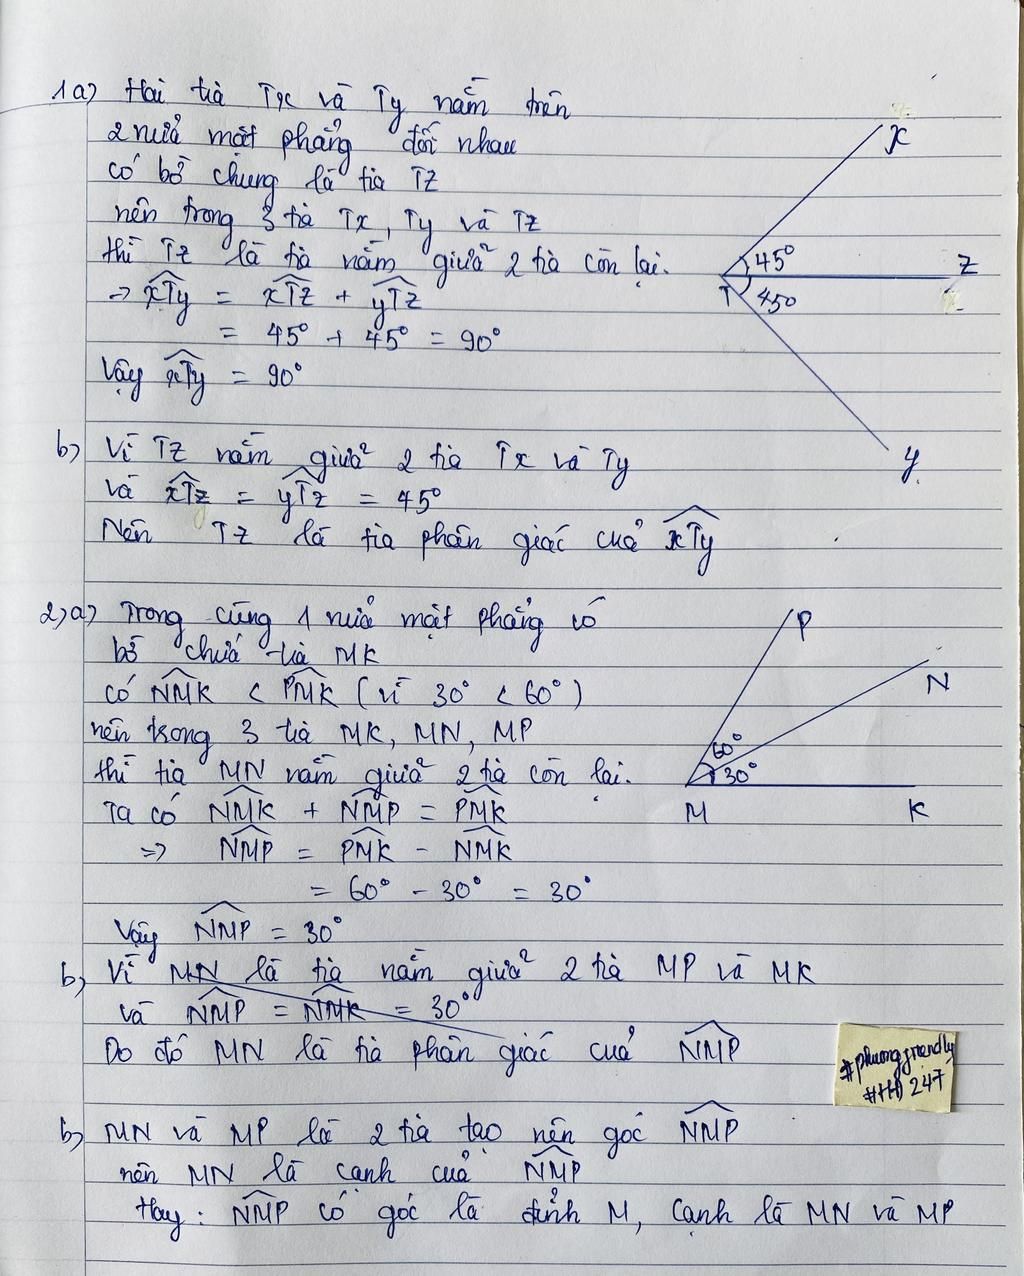 1a) Hai tia Tx và Ty nằm trên
2 nửa mặt phẳng đối nhau
có bờ chung là tia Tz
nên trong 3 tia Tx, Ty và Tz
thì Tz là tia nằm giữa 2 tia còn lại.
→ xTy = xTz + yTz
= 45° + 45° = 90°
Vậy xTy = 90°
x
45°
z
T
45°
y
b) Vì Tz nằm giữa 2 tia Tx và Ty
và xTz = yTz = 45°
Nên Tz là tia phân giác của xTy
2) a) Trong cùng 1 nửa mặt phẳng có
bờ chứa tia MK
có NMK < PMK (vì 30° < 60°)
nên trong 3 tia MK, MN, MP
thì tia MN nằm giữa 2 tia còn lại.
Ta có NMK + NMP = PMK
=> NMP = PMK - NMK
= 60° - 30° = 30°
Vậy NMP = 30°
P
N
60°
30°
M K
b) Vì MN là tia nằm giữa 2 tia MP và MK
và NMP = NMK = 30°
Do đó MN là tia phân giác của NMP
#phuongfriendly
#HD247
b) MN và MP là 2 tia tạo nên góc NMP
nên MN là cạnh của NMP
Hay: NMP có góc là đỉnh M, cạnh là MN và MP